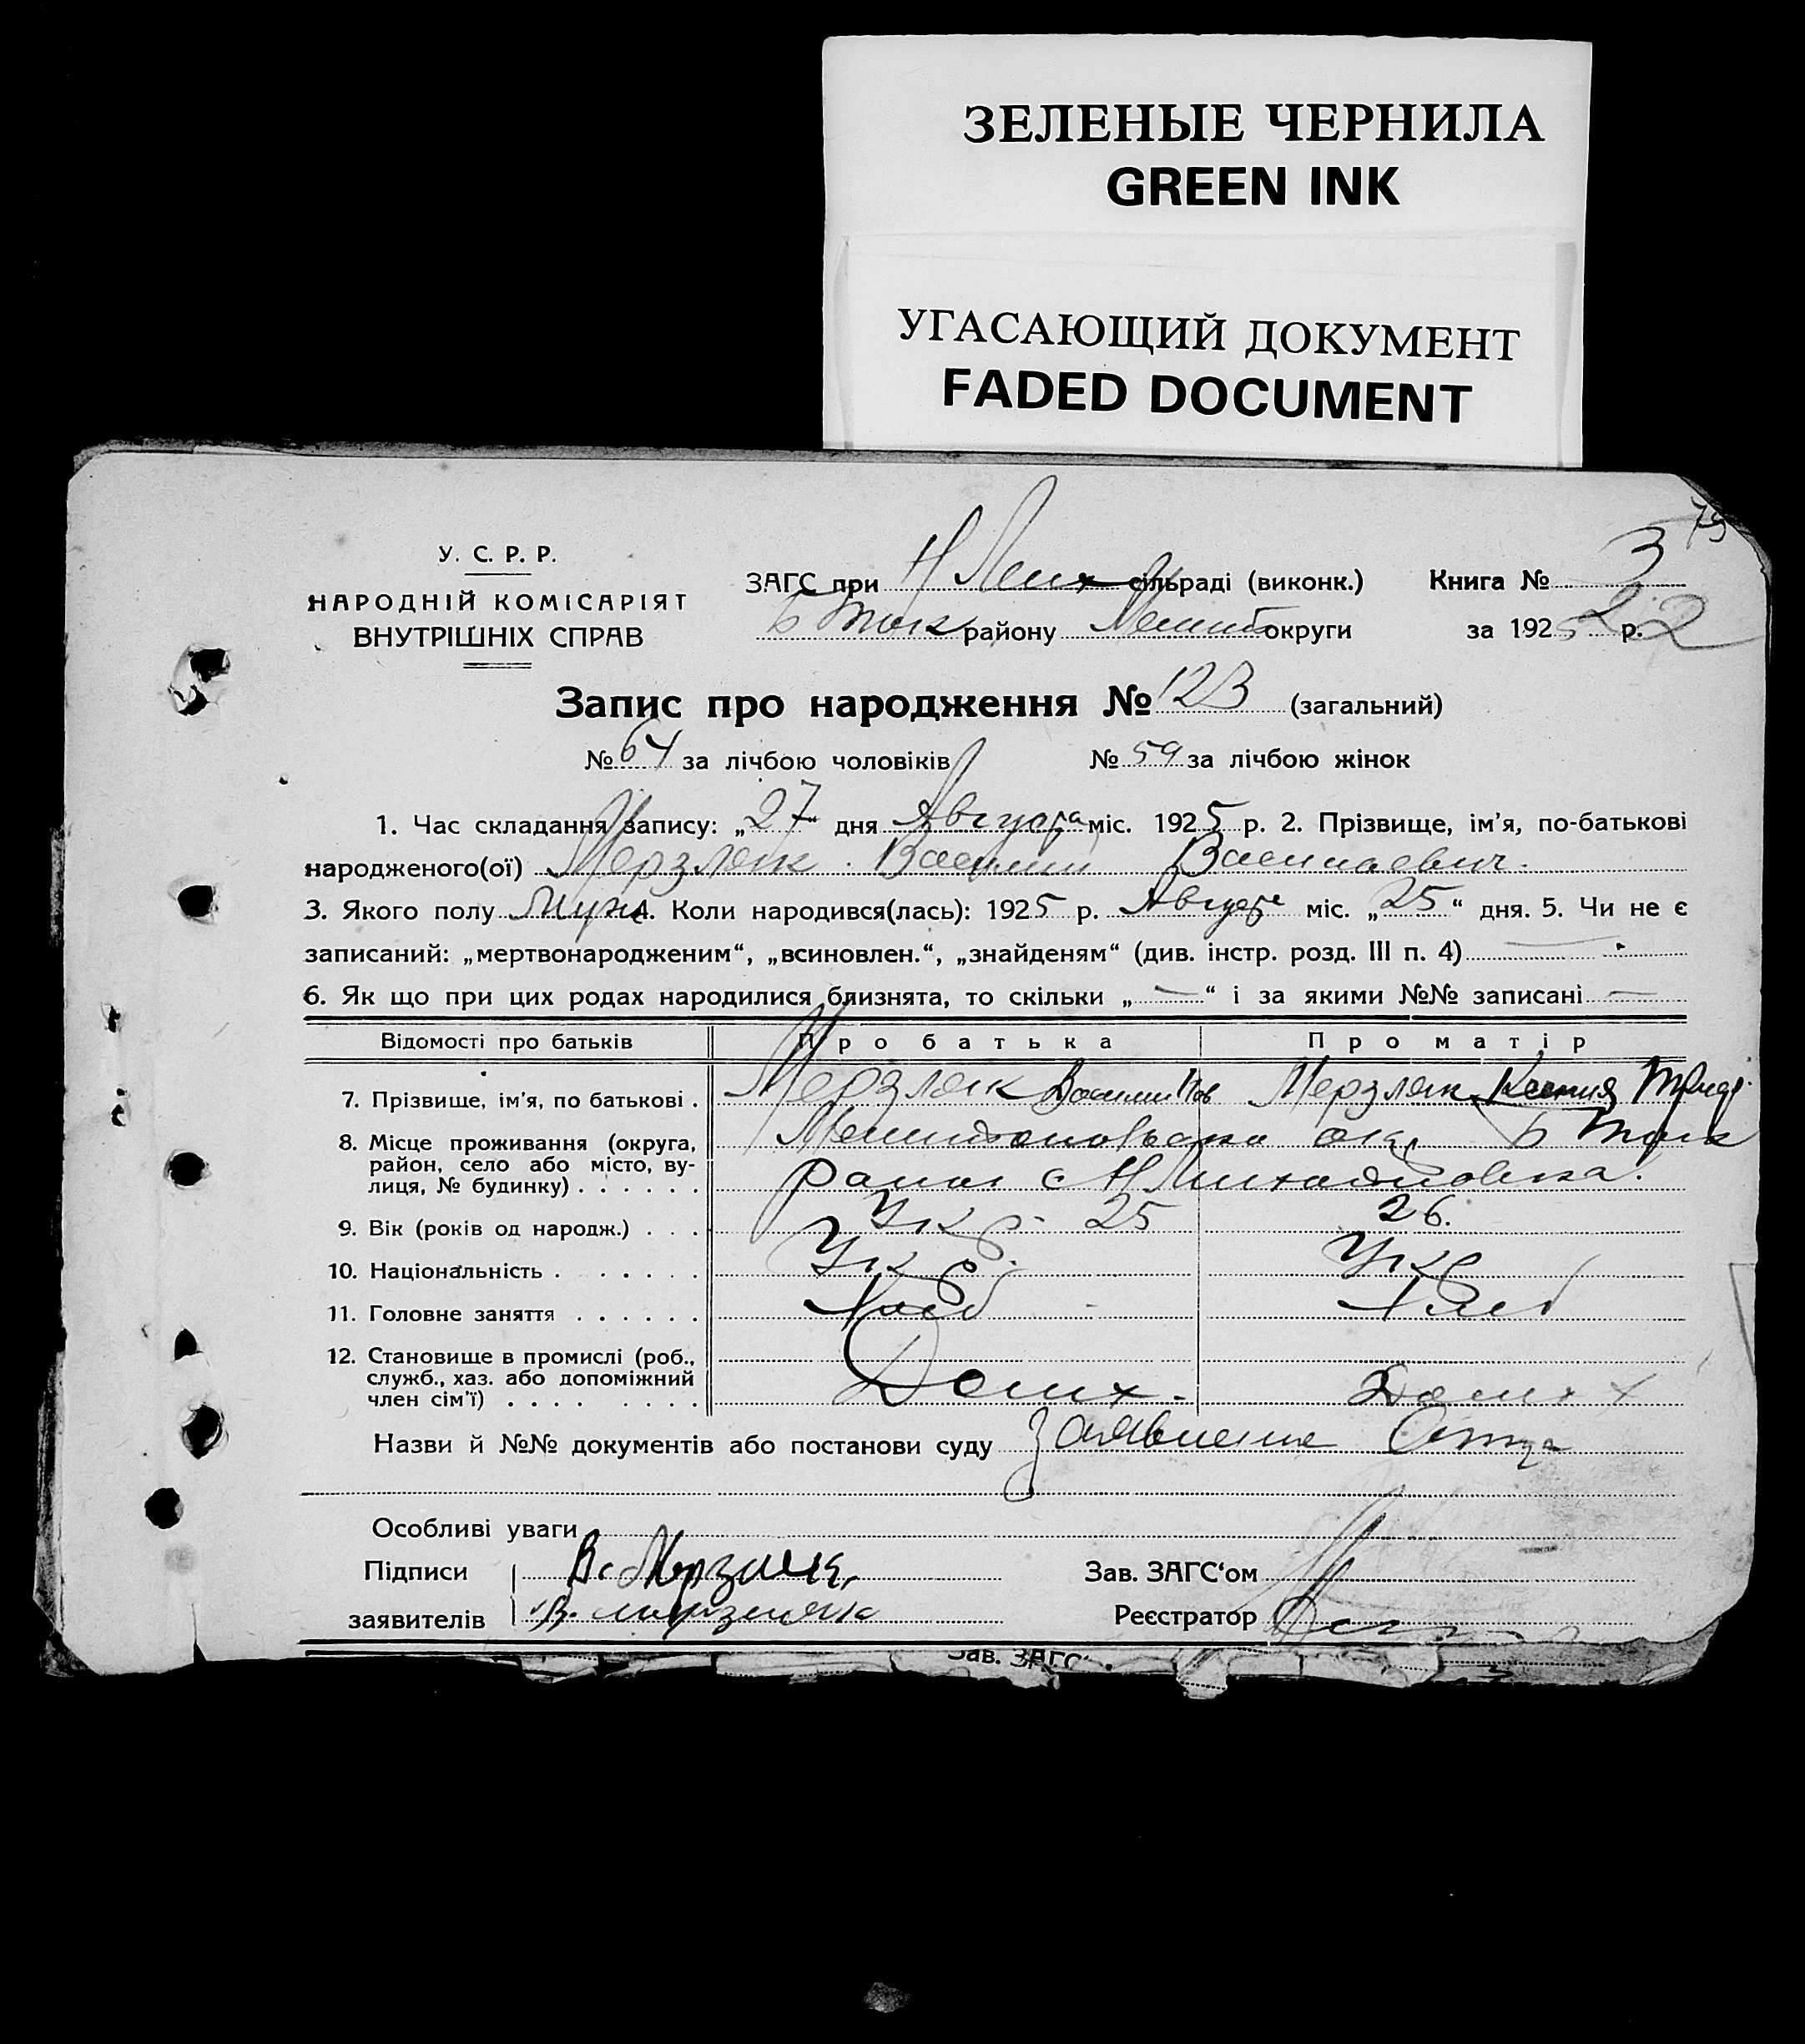 ЗЕЛЕНЫЕ ЧЕРНИЛА
GREEN INK
УГАСАЮЩИЙ ДОКУМЕНТ
FADED DOCUMENT
75
У. С. Р. Р.
НАРОДНІЙ КОМІСАРІЯТ
ВНУТРІШНІХ СПРАВ
ЗАГС при Н Мих сільраді (виконк.) Книга № 3
Б Ток району Мелит округи за 1925 р. 22
Запис про народження № 123 (загальний)
№ 64 за лічбою чоловіків № 59 за лічбою жінок
1. Час складання запису: „27“ дня Августа міс. 1925 р. 2. Прізвище, ім'я, по-батькові
народженого(ої) Мерзляк Василий Васильевич.
3. Якого полу Муж 4. Коли народився(лась): 1925 р. Август міс. „25“ дня. 5. Чи не є
записаний: „мертвонародженим“, „всиновлен.“, „знайденям“ (див. інстр. розд. III п. 4) —
6. Як що при цих родах народилися близнята, то скільки „—“ і за якими №№ записані —
Відомості про батьків Про батька Про матір
7. Прізвище, ім'я, по батькові . Мерзляк Василий Мерзляк Ксения
8. Місце проживання (округа, Мелитопольская ок. Б Ток
район, село або місто, ву-
лиця, № будинку) . . . . . . район с Н Михайловка.
9. Вік (років од народж.) . . . 25 26.
10. Національність . . . . . . Укр. Укр
11. Головне заняття . . . . . . Хлеб Хлеб
12. Становище в промислі (роб.,
служб., хаз. або допоміжний
член сім'ї) . . . . . . . . Домх. Домх
Назви й №№ документів або постанови суду Заявление Отца
Особливі уваги
Підписи В. Мерзляк Зав. ЗАГС'ом
заявителів В. Мерзляк Реєстратор
Зав. ЗАГС'